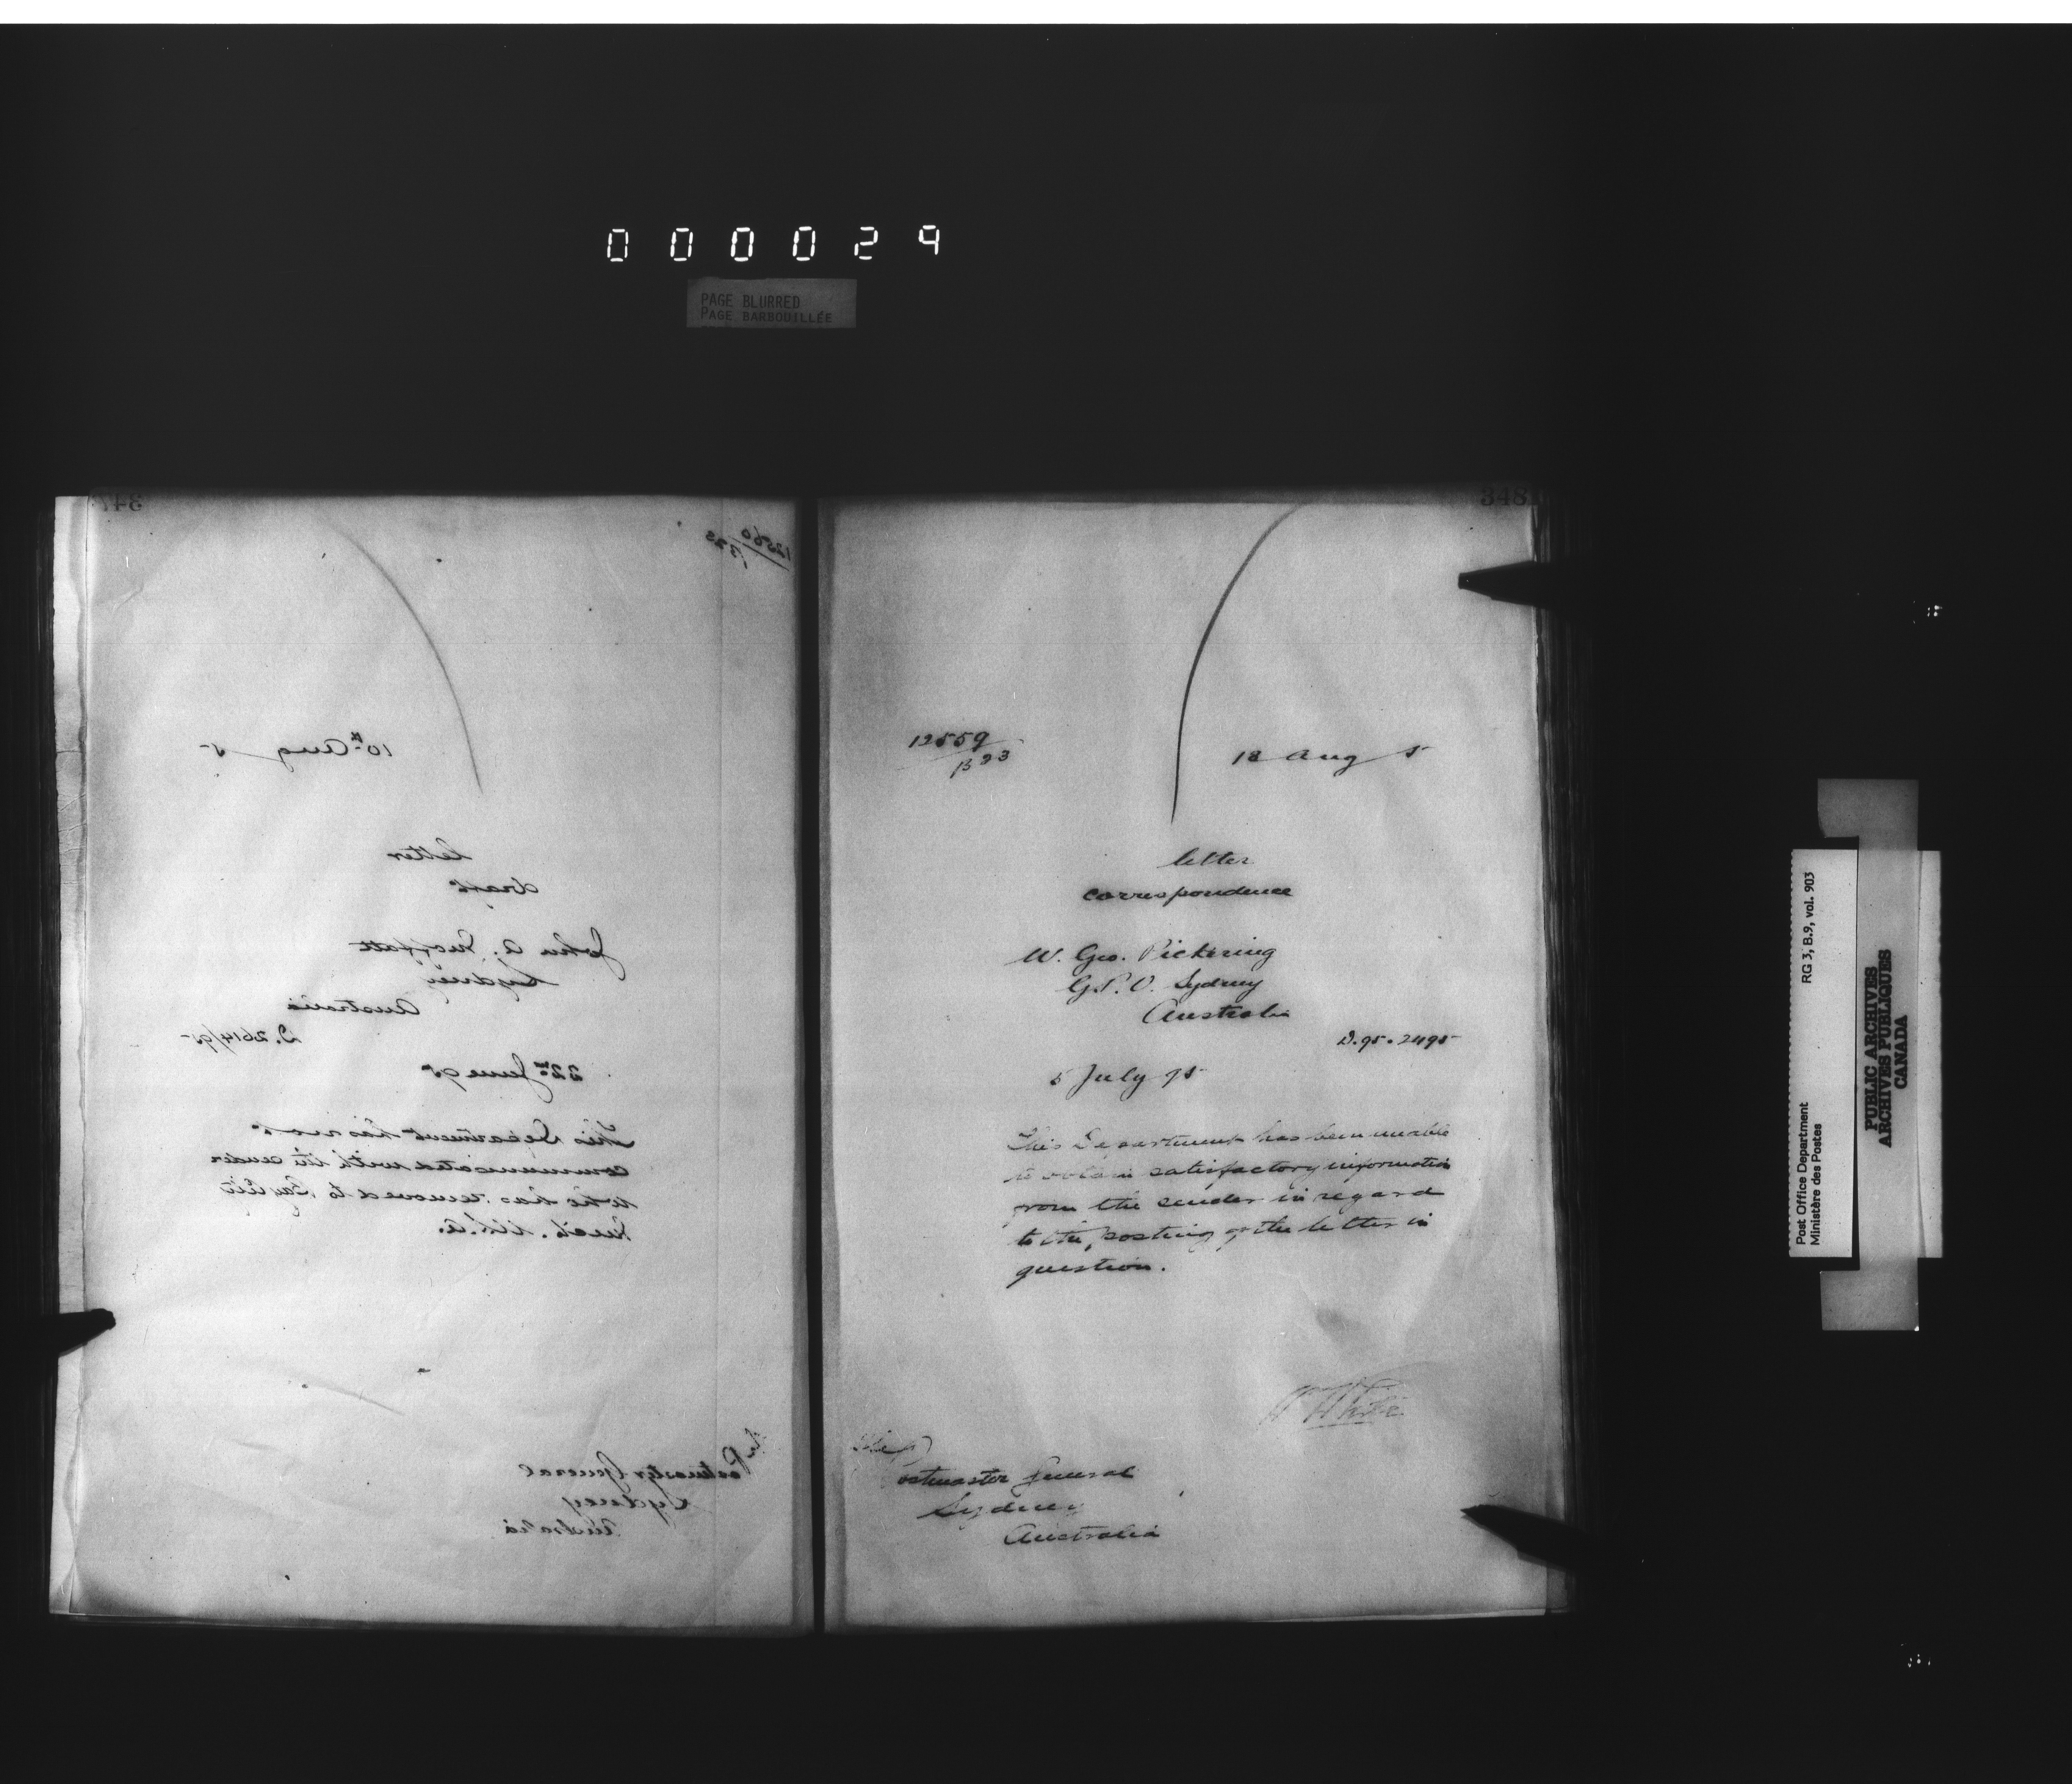 000029
PAGE BLURRED
PAGE BARBOUILLÉE
347
12560
B 23
10th Aug 5
letter
draft
John A. Moffatt
Sydney
Australia
D. 2614/95
22nd June 95
This Department has not
communicated with the sender
who has removed to
Mich. U.S.A.
The Postmaster General
Sydney
Australia
348
12559
B 23
12 Aug 5
letter
correspondence
W. Geo. Pickering
G.P.O. Sydney
Australia
D. 95. 2495
5 July 95
This Department has been unable
to obtain satisfactory information
from the sender in regard
to the posting of the letter in
question.
W White
The Postmaster General
Sydney
Australia
Post Office Department RG 3, B.9, vol. 903
Ministère des Postes
PUBLIC ARCHIVES
ARCHIVES PUBLIQUES
CANADA